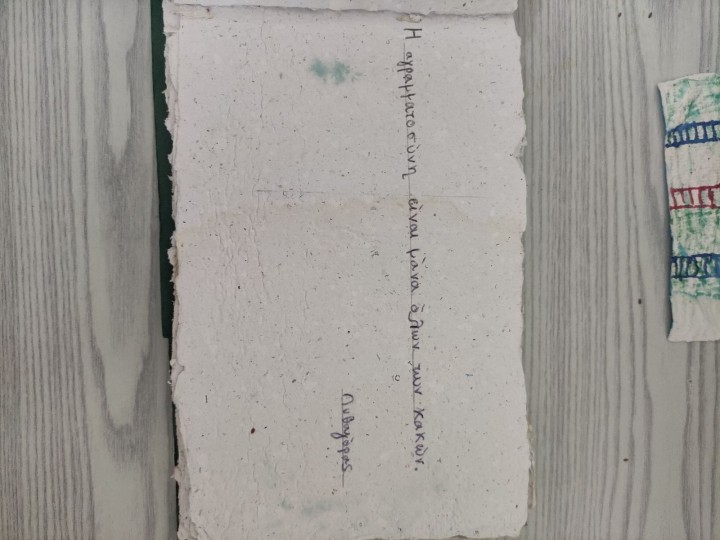 Η αγραμματοσύνη είναι μάνα όλων των κακών.
Πυθαγόρας